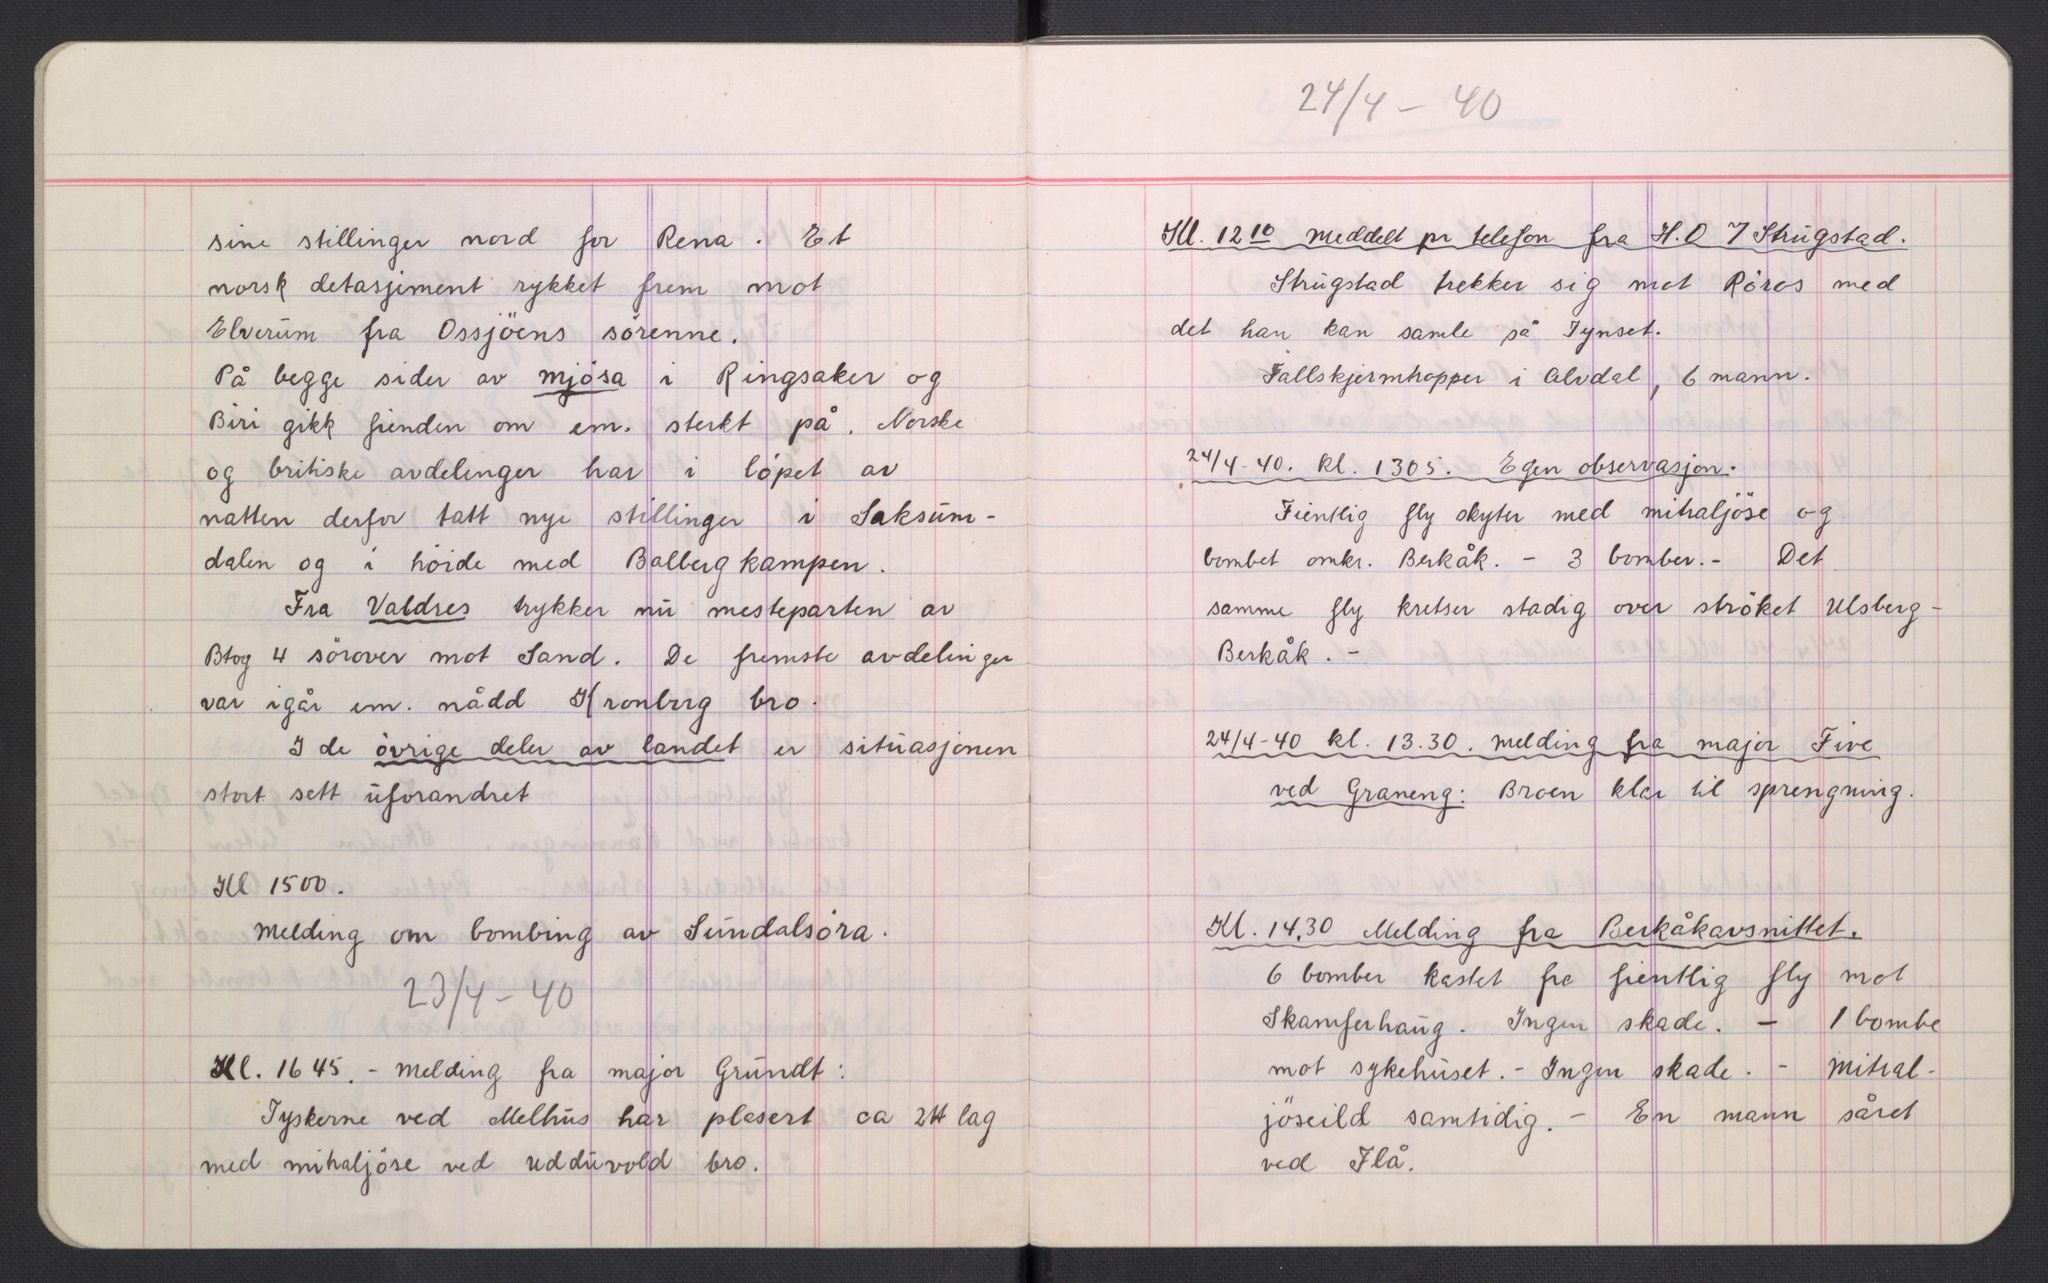 sine stillinger nord for Rena. Et
norsk detasjement rykket frem mot
Elverum fra Ossjöens sörenne.
På begge sider av Mjösa i Ringsaker og
Biri gikk fienden om em. sterkt på. Norske
og britiske avdelinger har i löpet av
natten derfor tatt nye stillinger i Saksum-
dalen og i höide med Balbergkampen.
Fra Valdres trykker nu mesteparten av
Btog 4 sörover mot Sand. De fremste avdelinger
var igår em. nådd Kronborg bro.
I de övrige deler av landet er situasjonen
stort sett uforandret
Kl 1500.
Melding om bombing av Sundalsöra.
23/4-40
Kl. 1645. - Melding fra major Grundt:
Tyskerne ved Melhus har plasert ca 24 lag
med mitraljöse ved Udduvold bro.
24/4-40
Kl. 1210 meddelt pr telefon fra H.O 7 Strugstad.
Strugstad trekker sig mot Röros med
det han kan samle på Tynset.
Fallskjermhopper i Alvdal, 6 mann.
24/4-40. kl. 1305. Egen observasjon.
Fientlig fly skyter med mitraljöse og
bombet omkr. Berkåk. - 3 bomber. - Det
samme fly kretser stadig over ströket Ulsberg-
Berkåk. -
24/4-40 kl. 13.30. Melding fra major Five
ved Graneng: Broen klar til sprengning.
Kl. 14.30 Melding fra Berkåkavsnittet.
6 bomber kastet fra fientlig fly mot
Skamferhaug. Ingen skade. - 1 bombe
mot sykehuset. - Ingen skade. - Mitral-
jöseild samtidig. - En mann såret
ved Flå.